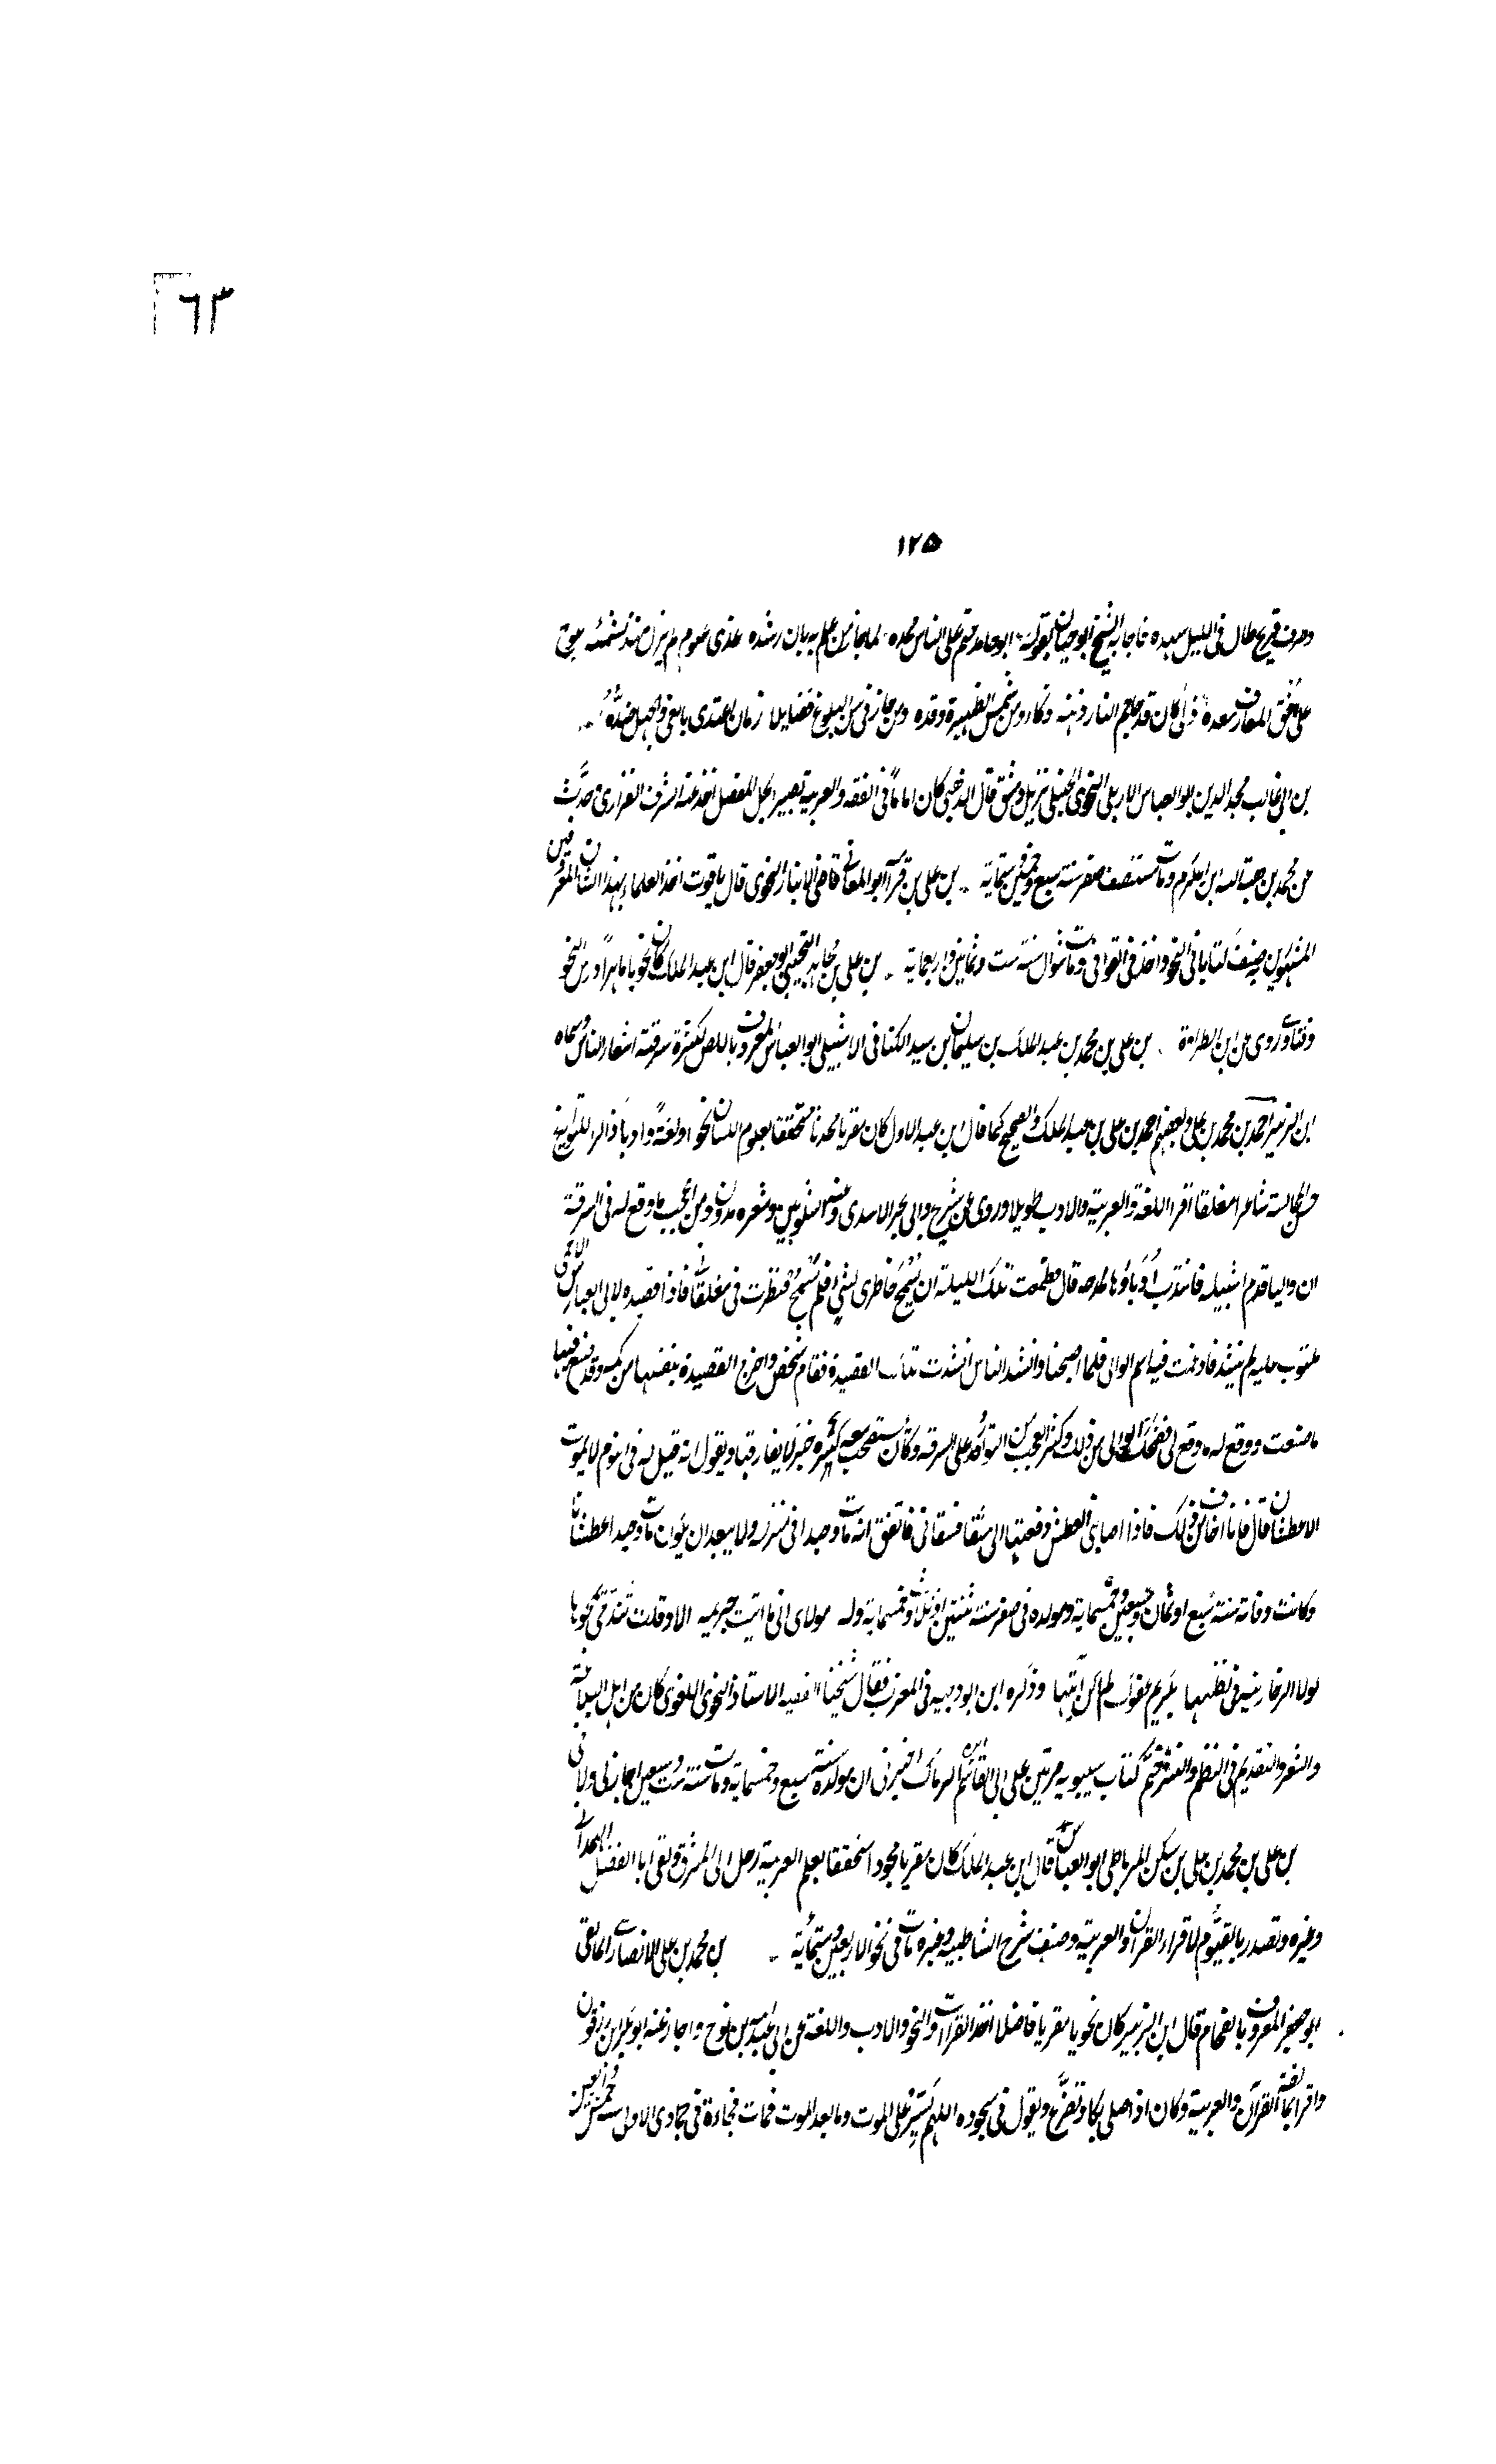 ٦٣
١٢٥
وطرف قريح طال في الليل سهده فاجابه الشيخ ابو حيان بقوله ابو حامد حتم على الناس حمده لما حاز من علم به بان رشده غذى علوم لم يزل منذ نشئه يلوح
على افق المعارف سعده ذكي كان قد جاحم النار ذهنه ذكاء ومن شمس الظهيرة وقده ومن حاز في سن البلوغ فضايلا زمان اغتدى بالعي والجهل ضده
بن ابي غالب مجد الدين ابو العباس الاربلي النحوي الحنبلي نزيل دمشق قال الذهبي كان اماما في الفقه والعربية بصيرا بحل المفصل اخذ عنه الشرف الفزاري وحدث
عن محمد بن هبة الله ابن المكرم ومات منتصف صفر سنة سبع وخمسين وستماية بن علي بن قدامة ابو المعالي قاضي الانبار النحوي قال ياقوت احد العلماء بهذا الشان المعروفين
المشهورين به صنف كتابا في النحو واخر في القوافي ومات في شوال سنة ست وثمانين واربعماية بن علي بن مجاهد التجيبي ابو جعفر قال ابن عبد الملك كان نحويا ماهرا درس النحو
وقتا وروى عن ابن الطراوة بن علي بن محمد بن عبد الملك بن سليمان بن سيد الكناني الاشبيلي ابو العباس المعروف باللص لكثرة سرقته اشعار الناس وسماه
ابن الزبير احمد بن محمد بن علي وبعضهم احمد بن علي بن عبد الملك والصحيح كما قال ابن عبد الاول كان مقريا محدثا متحققا بعلوم اللسان نحوا ولغة وادبا ذاكرا للتواريخ
حسن المجالسة شاعرا مفلقا اقرا اللغة والعربية والادب طويلا وروى عن شريح وابي بحر الاسدي وعنه الشلوبين وشعره مدون ومن اعجب ما وقع له في السرقة
ان واليا قدم اشبيلية فانتدب ادباؤها لمدحه قال فطمعت تلك الليلة ان يسمح خاطري بشي فلم يسمح فنظرت في معلقاتي فاذا قصيدة لابي العباس الاعمى
مكتوب عليها لم ينشد فادغمت فيها اسم الوالي فلما اصبحنا وانشد الناس انشدت تلك القصيدة فقام شخص واخرج القصيدة بعينها من كمه وقد صنع فيها
ما صنعت ووقع له ما وقع لي فضحك الوالي من ذلك وكثر العجب من التوارد على السرقة وكان يستصحب معه كسرة خبز لا يفارقها ويقول انه قيل له في النوم لا تموت
الا عطشانا قال فانا اخاف من ذلك فاذا اصابني العطش دفعتها الى سقا فسقاني فاتفق انه مات وحيدا في منزله ولا يبعد ان يكون مات وحيدا عطشانا
وكانت وفاته سنة سبع او ثمان وسبعين وخمسماية ومولده في صفر سنة ثنتين او ثلاث وخمسماية وله مولاي اني ما اتيت جريمة الا وقلت تندمي يمحوها
لولا الرجاء ونية في نظمها بكريم عفوك لم اكن آتيها وذكره ابن ابو دحية في المطرب فقال شيخنا الفقيه الاستاذ النحوي اللغوي كان من اهل البلاغة
والشعر والتقديم في النظم والنثر ختم كتاب سيبويه مرتين على ابي القاسم ابن الرماك اخبرني ان مولده سنة سبع وخمسماية ومات سنة ست وسبعين اجاز لي ولاخي
بن علي بن محمد بن علي بن سكن المرباطي ابو العباس قال ابن عبد الملك كان مقريا مجودا متحققا بعلم العربية رحل الى المشرق ولقي ابا الفضل الهمداني
وغيره وتصدر بالفيوم لاقراء القرآن والعربية وصنف شرح الشاطبية وغيره مات في نحو الاربعين وستماية بن محمد بن علي الانصاري المالقي
ابو جعفر المعروف بالفحام قال ابن الزبير كان نحويا مقريا فاضلا اخذ القراآت والنحو والادب واللغة عن ابي عبد الله بن نوح واجاز عنه ابو بكر ابن زرقون
واقرا بمالقة القرآن والعربية وكان اذا صلى بكا وتضرع ويقول في سجوده اللهم يسر علي الموت وما بعد الموت فمات فجاءة في جمادى الاولى سنة خمس واربعين